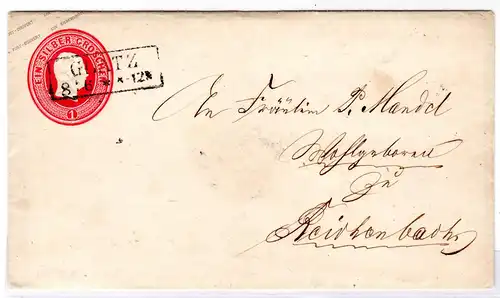 EIN SILBER GROSCHEN
1
8 6 * *-12*
An Fräulein P. Mandel
Wohlgeboren
Zu
Reichenbach